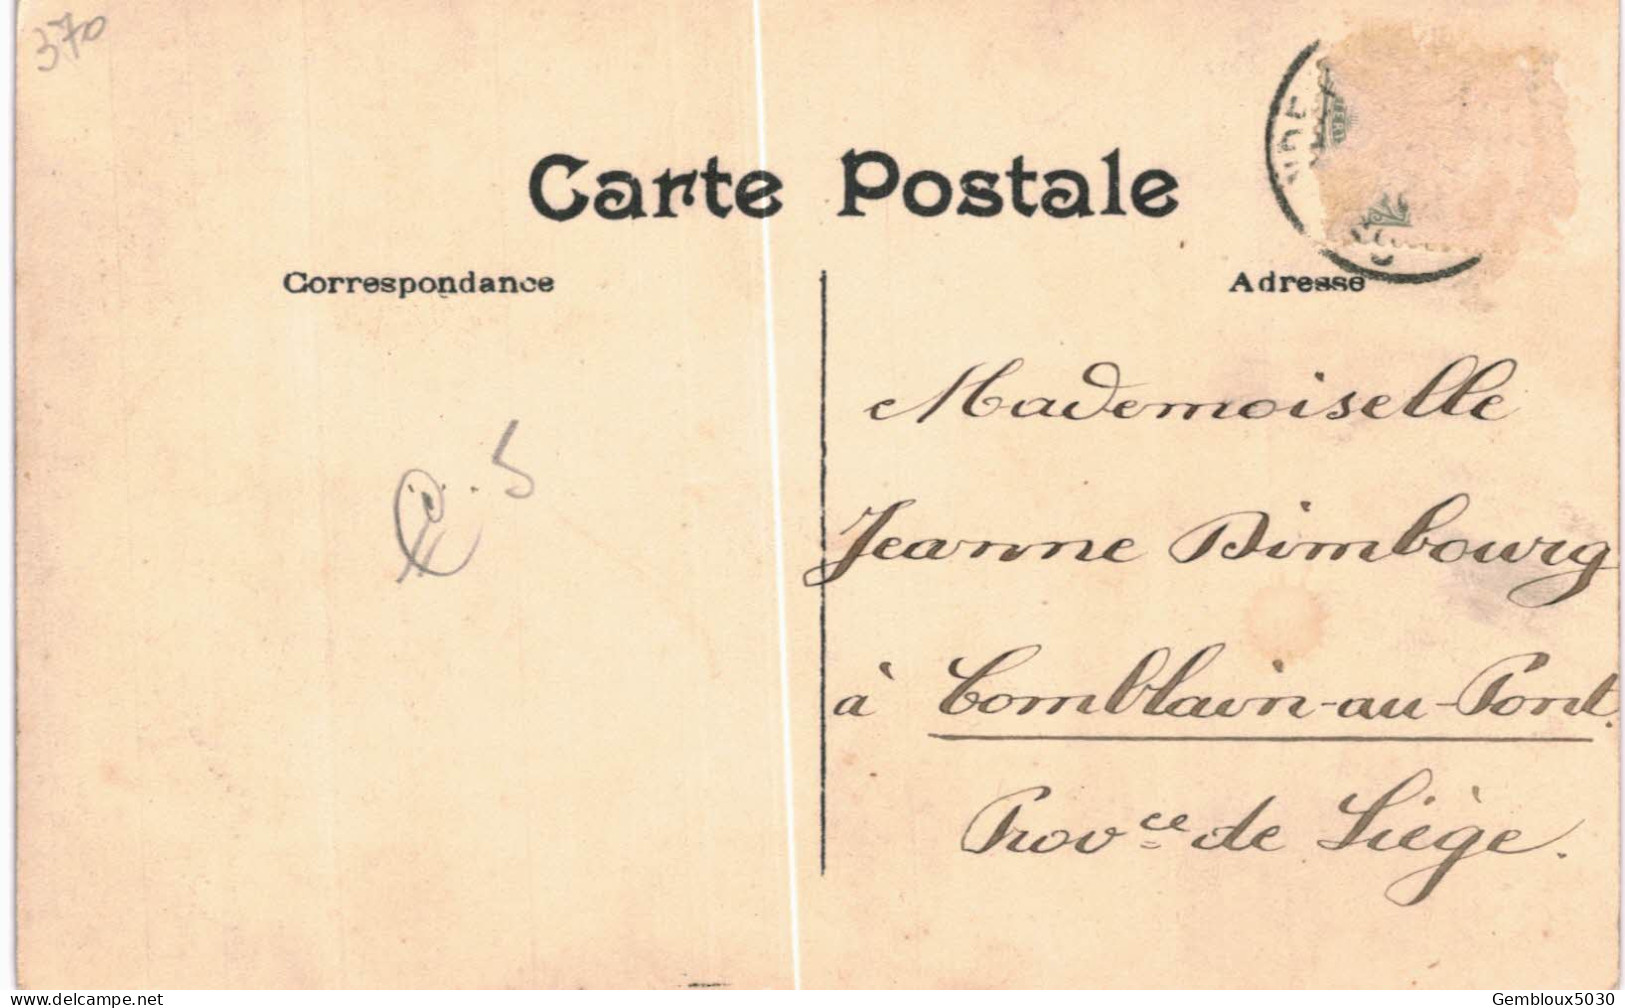 370
Carte Postale
Correspondance
Adresse
Mademoiselle
Jeanne Dimbourg
à Comblain-au-Pont.
Prov^ce de Liège.
Gembloux5030